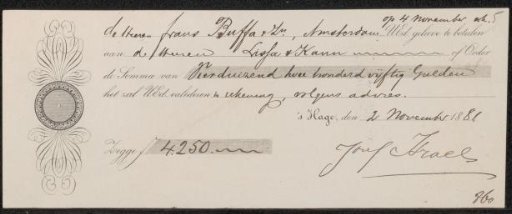 op 4 November
de Heeren Frans Buffa & Zn, Amsterdam, UEd. gelieve te betalen
aan de Heeren Lissa & Kann of Order
de Somma van Vierduizend twee honderd vijftig Gulden
het zal UEd. valideren in rekening, volgens advies.
's Hage, den 2 November 1881
Zegge ƒ 4250.
Jozef Israels